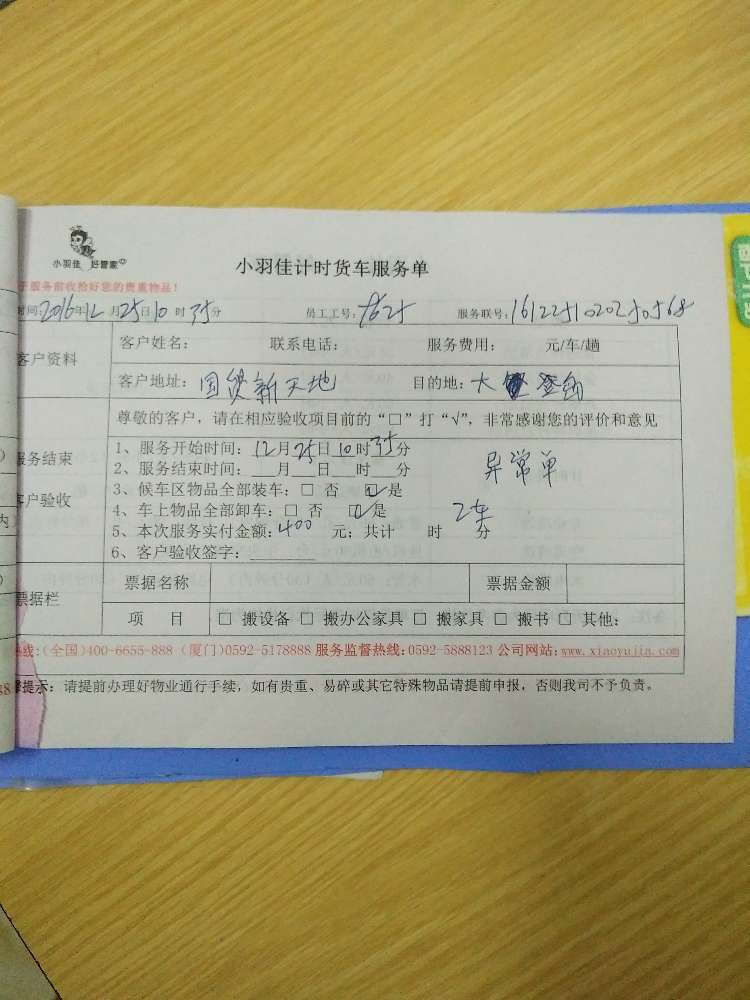 小羽佳 好管家
小羽佳计时货车服务单
服务前收拾好您的贵重物品！
时间：2016年12月25日10时35分 员工工号： 服务联号：
客户资料
客户姓名： 联系电话： 服务费用： 元/车/趟
客户地址：国贸新天地 目的地：大
尊敬的客户，请在相应验收项目前的“□”打“√”，非常感谢您的评价和意见
服务结束
客户验收
1、服务开始时间：12月25日10时35分
2、服务结束时间：___月___日___时___分
异常单
3、候车区物品全部装车：□ 否 ☑是
4、车上物品全部卸车：□ 否 ☑是
2车
5、本次服务实付金额：400 元；共计 时 分
6、客户验收签字：________
票据栏
票据名称 票据金额
项 目 □ 搬设备 □ 搬办公家具 □ 搬家具 □ 搬书 □ 其他：
热线：(全国)400-6655-888 (厦门)0592-5178888 服务监督热线：0592-5888123 公司网站：www.xiaoyujia.com
提示：请提前办理好物业通行手续，如有贵重、易碎或其它特殊物品请提前申报，否则我司不予负责。